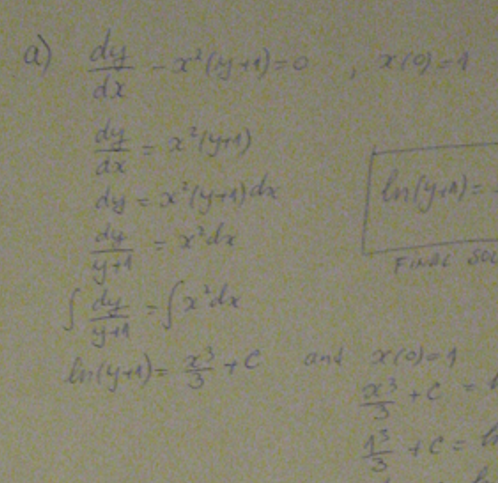 a) dy/dx - x²(y+1)=0 , x(0)=1
dy/dx = x²(y+1)
dy = x²(y+1)dx
dy/(y+1) = x²dx
∫ dy/(y+1) = ∫ x²dx
ln(y+1) = x³/3 + C and x(0)=1
x³/3 + C =
1³/3 + C =
ln(y+1) =
FINAL